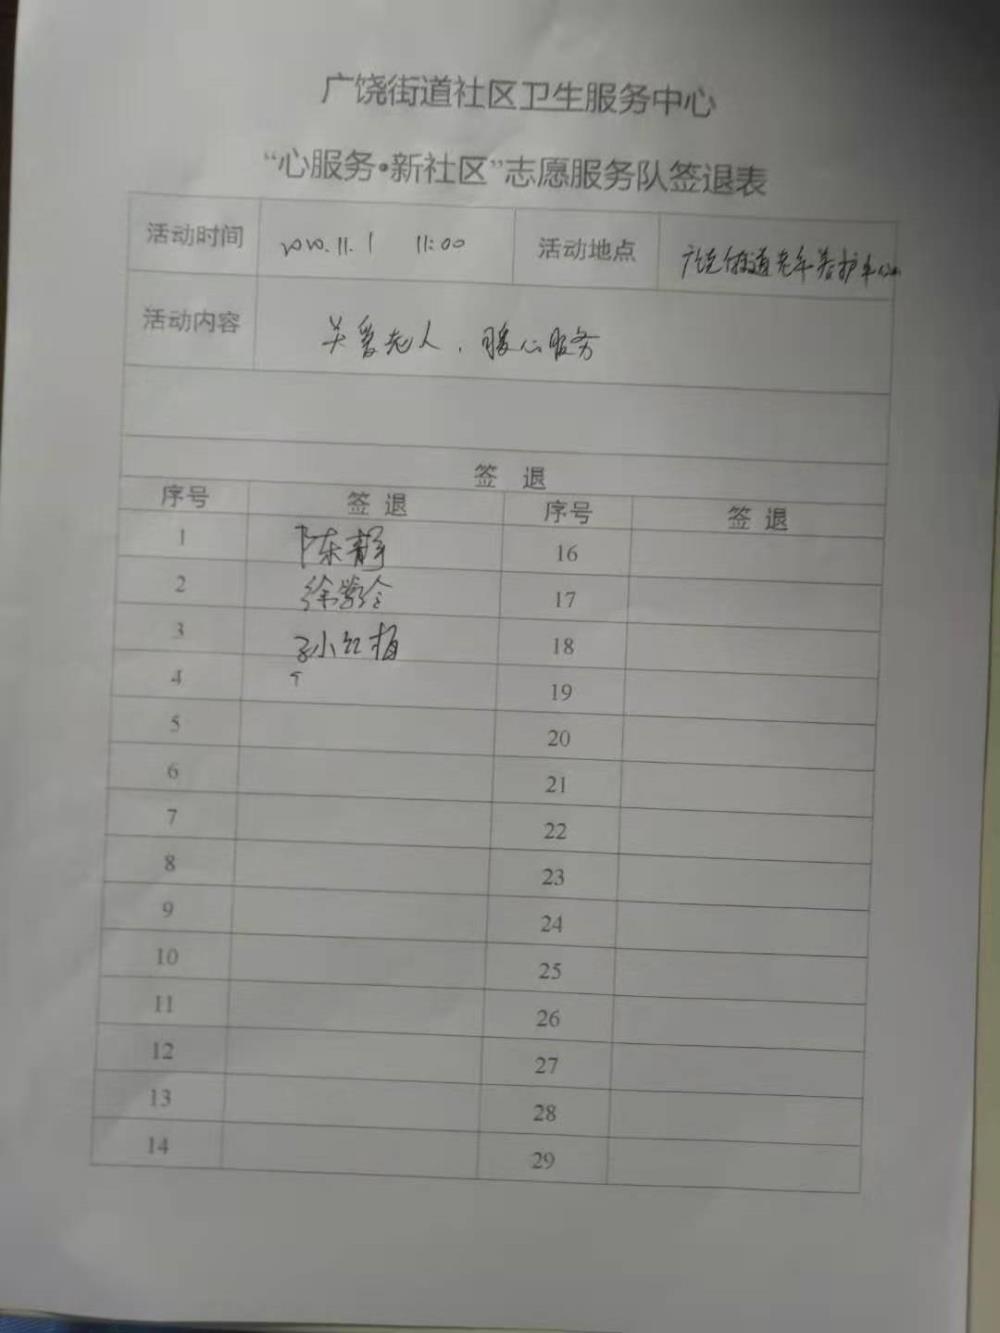 广饶街道社区卫生服务中心
“心服务•新社区”志愿服务队签退表
活动时间 2020.11.1 11:00 活动地点 广饶街道老年养护中心
活动内容 关爱老人，暖心服务
签 退
序号 签 退 序号 签 退
1 陈静 16
2 徐 17
3 孙红梅 18
4 19
5 20
6 21
7 22
8 23
9 24
10 25
11 26
12 27
13 28
14 29